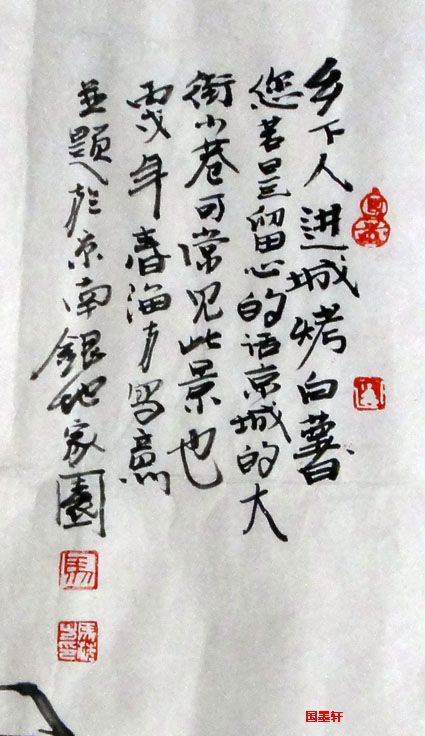 乡下人进城烤白薯
您若是留心的话京城的大
街小巷可常见此景也
丙戌年春海方写意
並题於京南銀地家园
馬
国墨轩